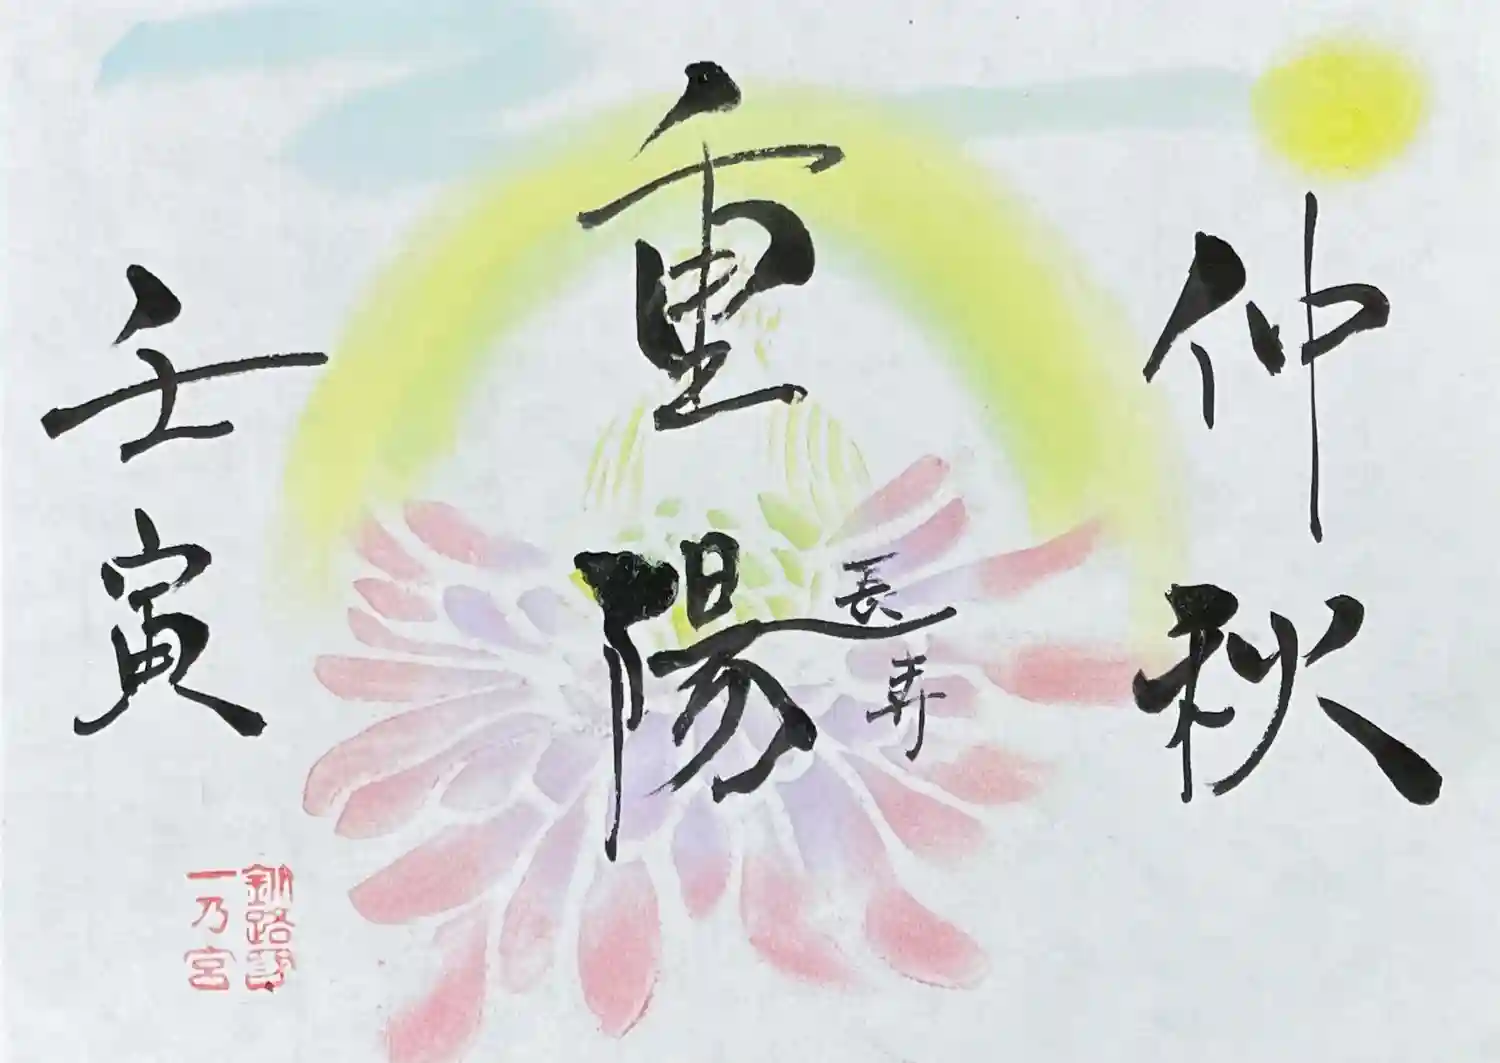 仲秋
重陽
長寿
壬寅
釧路國
一乃宮